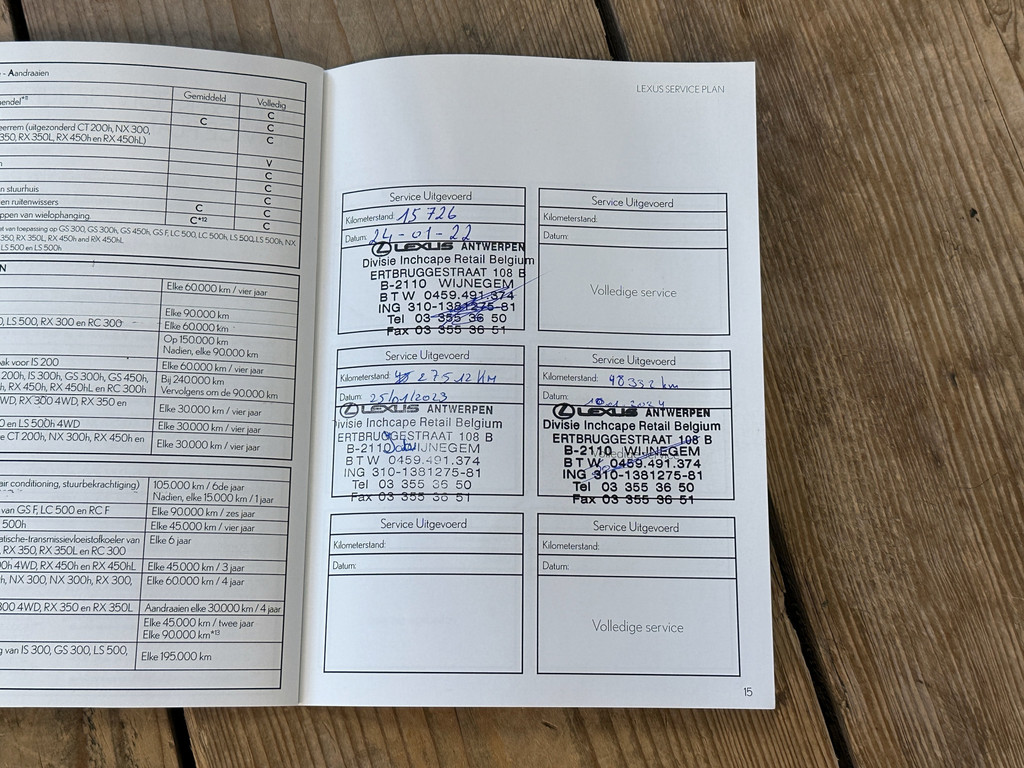 - Aandraaien
Gemiddeld Volledig
hendel*11 C
C C
eerrem (uitgezonderd CT 200h, NX 300,
350, RX 350L, RX 450h en RX 450hL) C
V
C
n stuurhuis C
en ruitenwissers C C
ppen van wielophanging. C*12 C
et van toepassing op GS 300, GS 300h, GS 450h, GS F, LC 500, LC 500h, LS 500, LS 500h, NX
350, RX 350L, RX 450h and RX 450hL
LS 500 en LS 500h
EN
Elke 60.000 km / vier jaar
Elke 90.000 km
, LS 500, RX 300 en RC 300 Elke 60.000 km
Op 150.000 km
Nadien, elke 90.000 km
ak voor IS 200 Elke 60.000 km / vier jaar
200h, IS 300h, GS 300h, GS 450h, Bij 240.000 km
h, RX 450h, RX 450hL en RC 300h Vervolgens om de 90.000 km
WD, RX 300 4WD, RX 350 en Elke 30.000 km / vier jaar
0 en LS 500h 4WD Elke 30.000 km / vier jaar
e CT 200h, NX 300h, RX 450h en Elke 30.000 km / vier jaar
air conditioning, stuurbekrachtiging) 105.000 km / 6de jaar
Nadien, elke 15.000 km / 1 jaar
van GS F, LC 500 en RC F Elke 90.000 km / zes jaar
500h Elke 45.000 km / vier jaar
atische-transmissievloeistofkoeler van Elke 6 jaar
, RX 350, RX 350L en RC 300
00h 4WD, RX 450h en RX 450hL Elke 45.000 km / 3 jaar
h, NX 300, NX 300h, RX 300, Elke 60.000 km / 4 jaar
300 4WD, RX 350 en RX 350L Aandraaien elke 30.000 km / 4 jaar
Elke 45.000 km / twee jaar
Elke 90.000 km*13
g van IS 300, GS 300, LS 500, Elke 195.000 km
LEXUS SERVICE PLAN
Service Uitgevoerd
Kilometerstand: 15 726
Datum: 24-01-22
LEXUS ANTWERPEN
Divisie Inchcape Retail Belgium
ERTBRUGGESTRAAT 108 B
B-2110 WIJNEGEM
BTW 0459.491.374
ING 310-1381275-81
Tel 03 355 36 50
Fax 03 355 36 51
Service Uitgevoerd
Kilometerstand:
Datum:
Volledige service
Service Uitgevoerd
Kilometerstand: 27512 KM
Datum: 25/01/2023
LEXUS ANTWERPEN
Divisie Inchcape Retail Belgium
ERTBRUGGESTRAAT 108 B
B-2110 WIJNEGEM
BTW 0459.491.374
ING 310-1381275-81
Tel 03 355 36 50
Fax 03 355 36 51
Service Uitgevoerd
Kilometerstand: km
Datum:
LEXUS ANTWERPEN
Divisie Inchcape Retail Belgium
ERTBRUGGESTRAAT 108 B
B-2110 WIJNEGEM
BTW 0459.491.374
ING 310-1381275-81
Tel 03 355 36 50
Fax 03 355 36 51
Service Uitgevoerd
Kilometerstand:
Datum:
Service Uitgevoerd
Kilometerstand:
Datum:
Volledige service
15